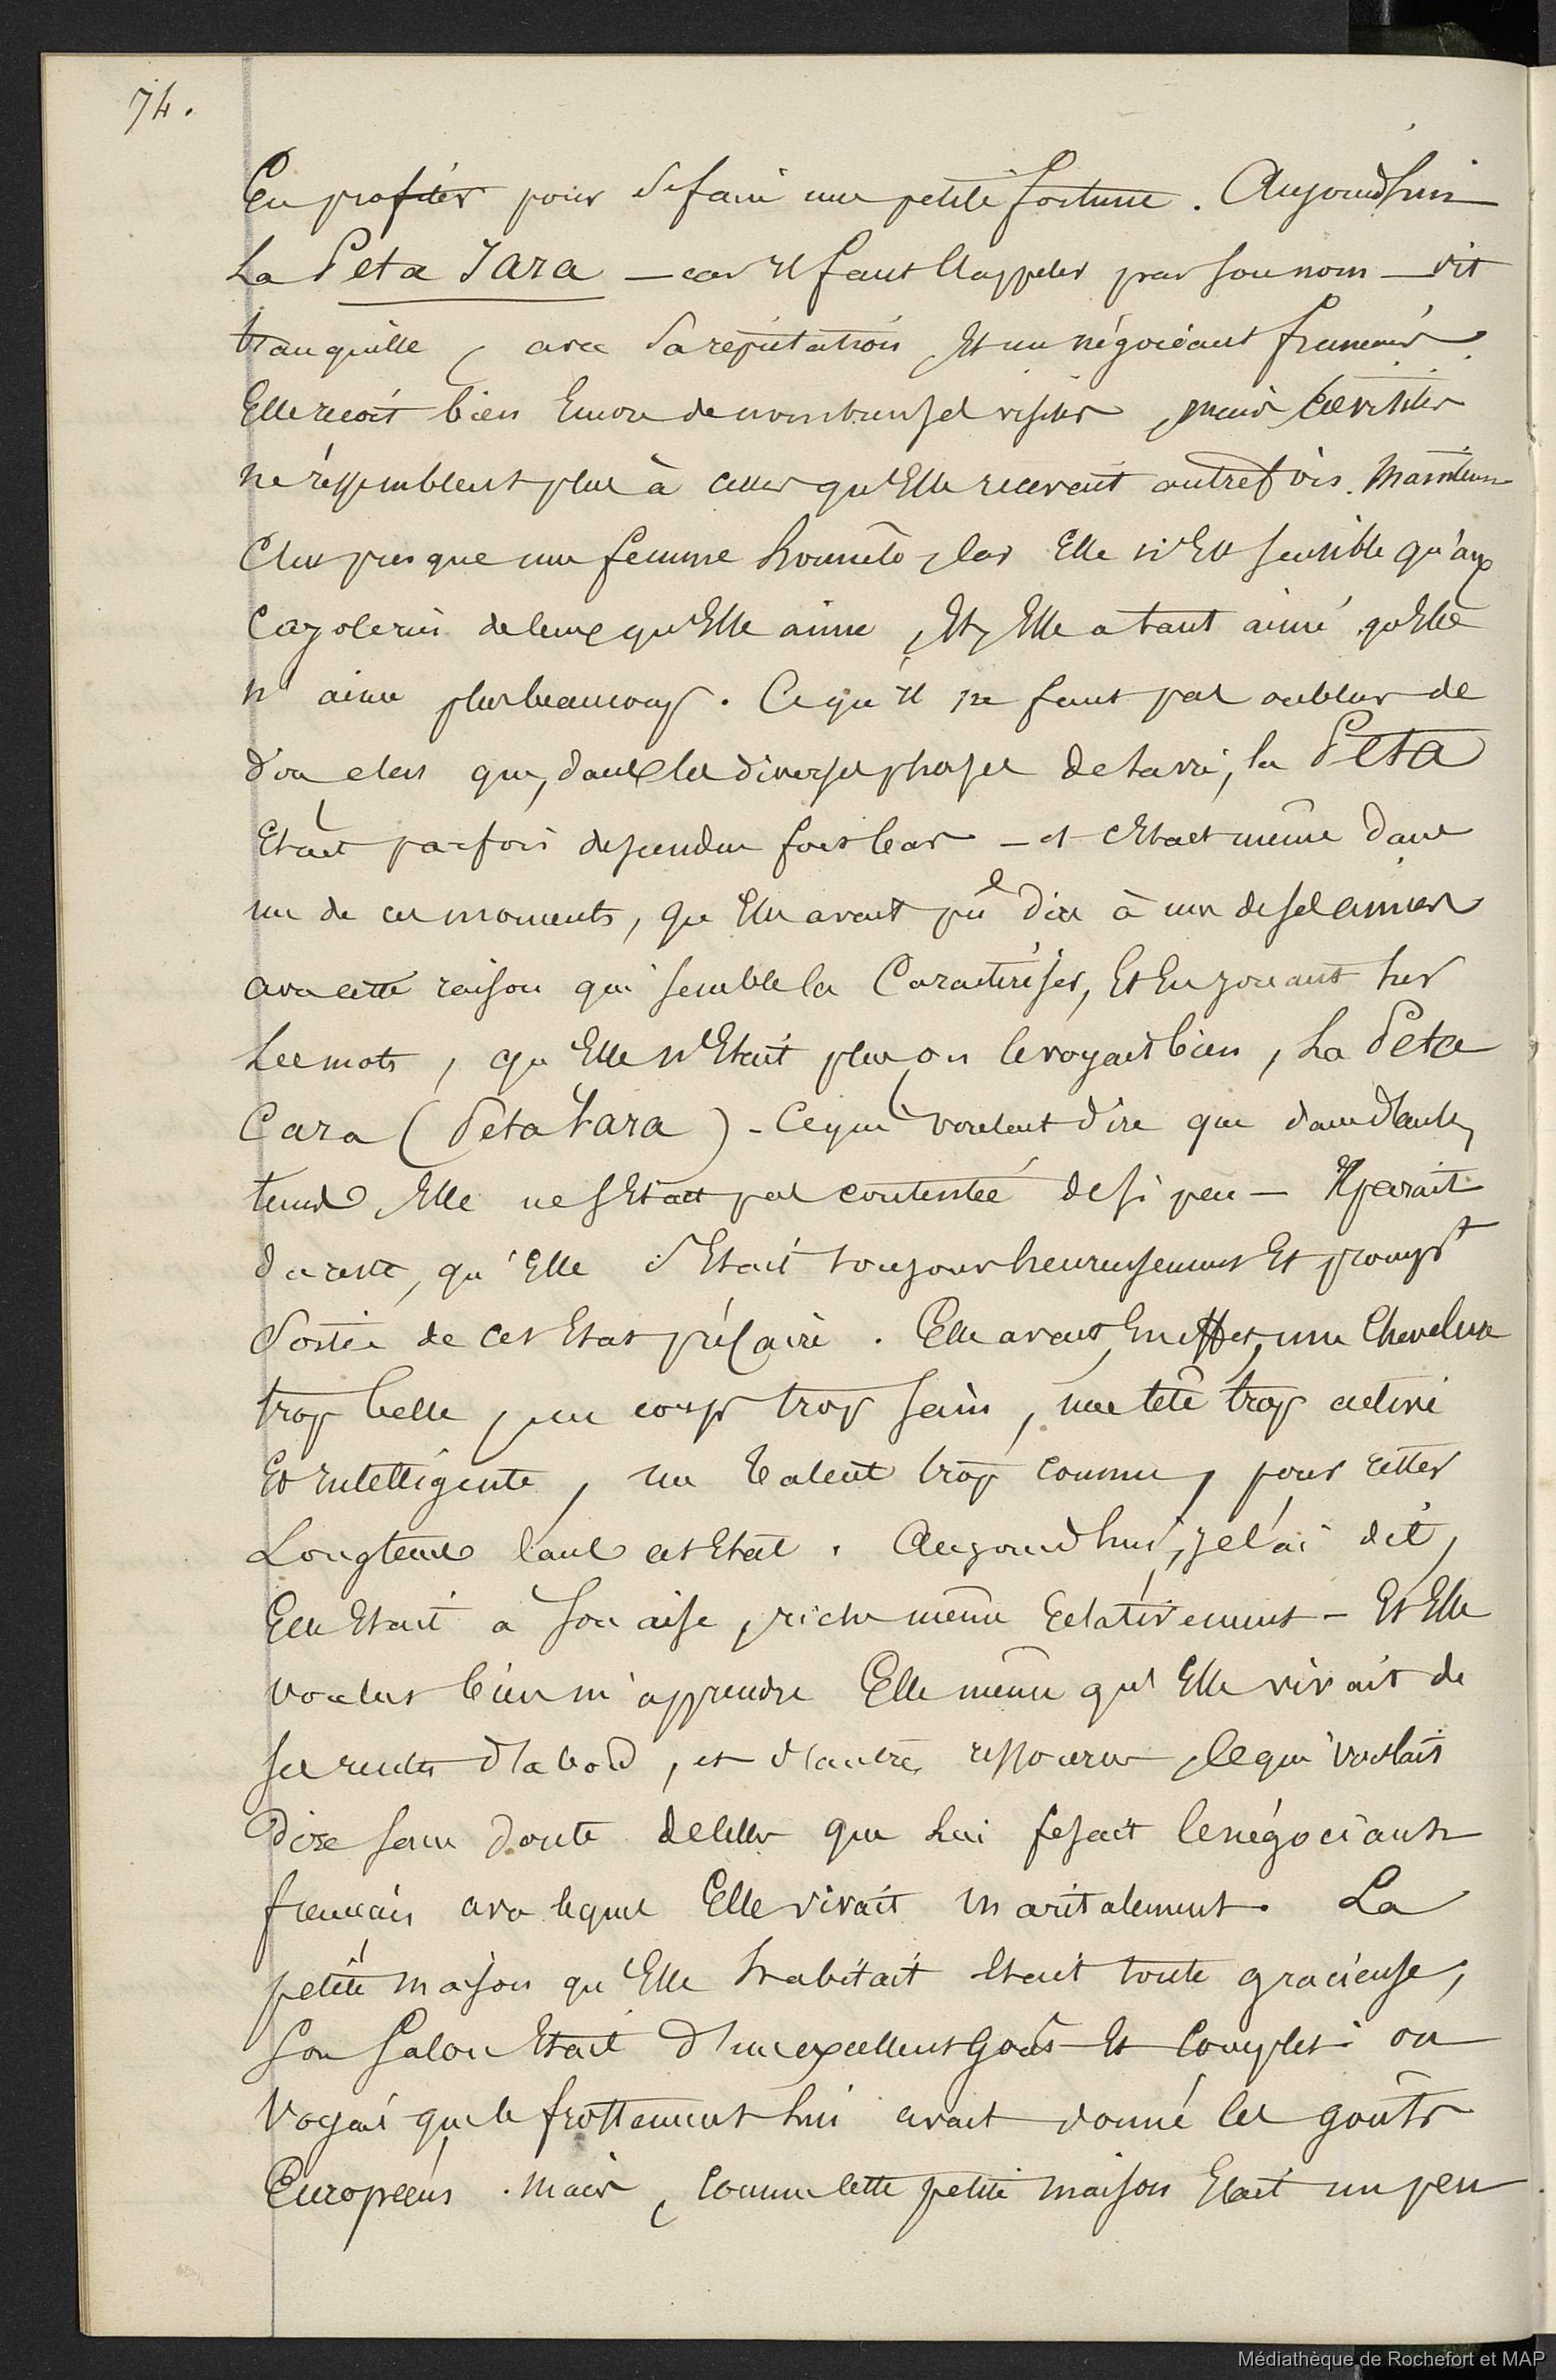 74.
En profiter pour se faire une petite fortune. Aujourd'hui
La Peta Yara — car il faut l'appeler par son nom — vit
tranquille, avec sa réputation et un négociant français.
Elle reçoit bien encore de nombreuses visites, mais ces visites
ne ressemblent plus à celles qu'Elle recevait autrefois. Maintenant
C'est presque une femme honnête, car Elle n'est sensible qu'aux
Cajoleries de ceux qu'Elle aime, Et, Elle a tant aimé qu'Elle
n'aime plus beaucoup. Ce qu'il ne faut pas oublier de
dire c'est que, dans les diverses phases de sa vie, la Peta
Etait parfois descendue fort bas — et c'Etait même dans
un de ces moments, que Elle avait pu dire à un de ses amies
avec cette raison qui semble la Caractériser, Et En jouant sur
Les mots, qu'Elle n'Etait plus, on le voyait bien, La Peta
Cara (Peta Yara) - Ce qui voulait dire que dans d'autres
temps Elle ne s'Etait pas contentée de si peu — Il parait
du reste, qu'Elle s'Etait toujours heureusement Et prompt
Sortie de cet Etat précaire. Elle avait, En effet, une Chevelure
trop belle, un corps trop sain, une tête trop active
Et intelligente, un talent trop connu, pour rester
Longtemps dans cet Etat. Aujourd'hui, je l'ai dit,
Elle Etait à son aise, riche même relativement — Et Elle
voulut bien m'apprendre Elle même qu'Elle vivait de
ses rentes d'abord, et d'autres ressources, ce qui voulait
Dire sans doute de celles que lui fesait le négociant
français avec lequel Elle vivait maritalement. La
petite maison qu'Elle habitait Etait toute gracieuse,
Son Salon Etait d'un excellent Goût Et Complet : on
Voyait que le frottement lui avait donné les goûts
Européens. Mais, comme cette petite maison Etait un peu
Médiathèque de Rochefort et MAP